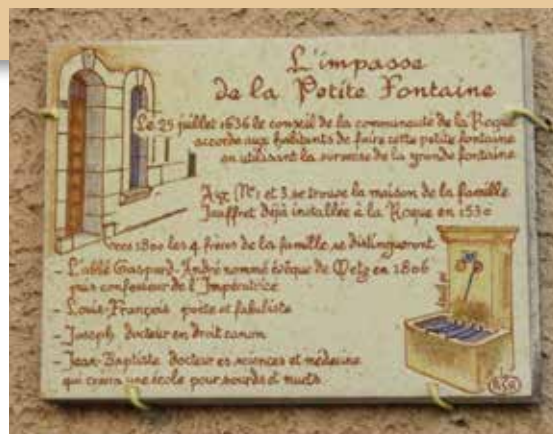 L'impasse
de la Petite Fontaine
Le 25 juillet 1636 le conseil de la communauté de la Roque
accorde aux habitants de faire cette petite fontaine
en utilisant la surverse de la grande fontaine
Aux N°1 et 3 se trouve la maison de la famille
Jauffret déjà installée à la Roque en 1530
vers 1800 les 4 frères de la famille se distingueront
- L'abbé Gaspard-André nommé évêque de Metz en 1806
puis confesseur de l'Impératrice
- Louis-François poète et fabuliste
- Joseph docteur en droit canon
- Jean-Baptiste docteur es sciences et médecine
qui créera une école pour sourds et muets